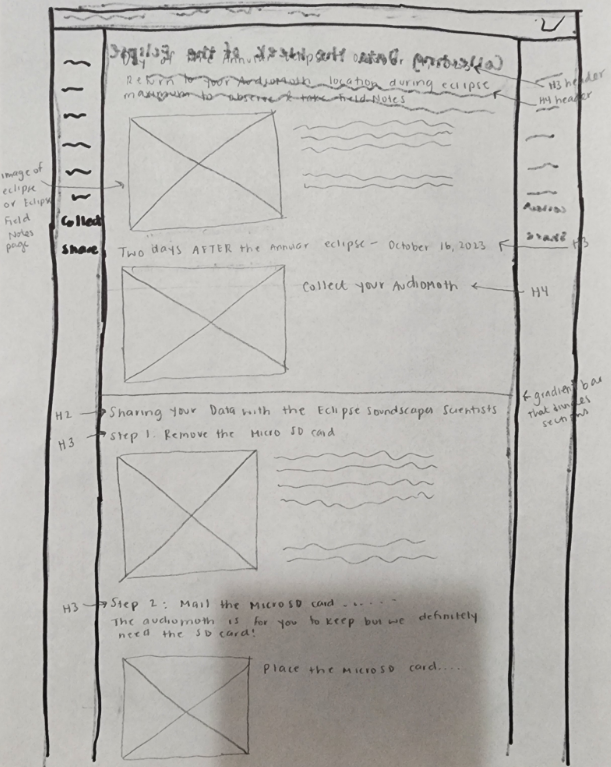 Return to your AudioMoth location during eclipse
maximum to observe & take Field Notes
H3 header
H4 header
image of
eclipse
or Eclipse
Field
Notes
page
Collect
Share
Two days AFTER the annular eclipse - October 16, 2023
H3
Collect your AudioMoth
H4
gradient bar
that divides
sections
H2
Sharing your Data with the Eclipse Soundscapes Scientists
H3
Step 1. Remove the Micro SD card
H3
Step 2: Mail the MicroSD card ......
The audiomoth is for you to keep but we definitely
need the SD card!
Place the MicroSD card.....